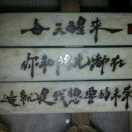 每天醒来
你和阳光都在
这就是我想要的未来